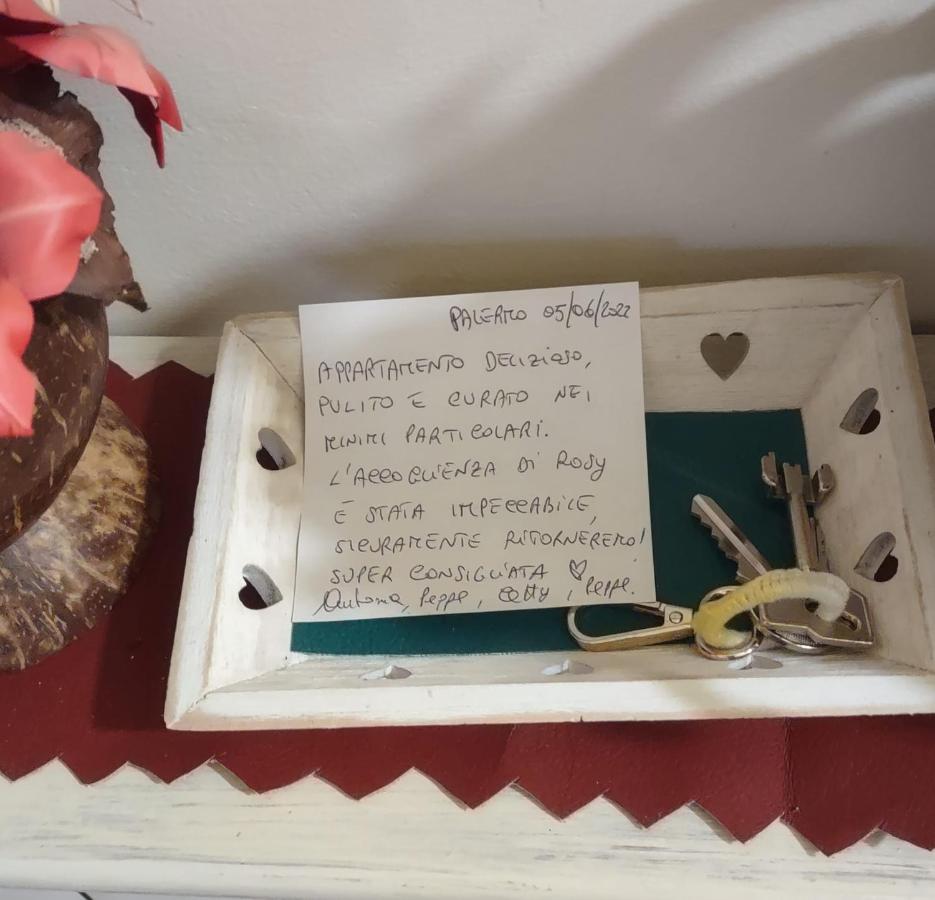 PALERMO 05/06/2022
APPARTAMENTO DELIZIOSO,
PULITO E CURATO NEI
MINIMI PARTICOLARI.
L'ACCOGLIENZA DI ROSY
È STATA IMPECCABILE,
SICURAMENTE RITORNEREMO!
SUPER CONSIGLIATA ♡
Peppe, Cetty, Peppe.